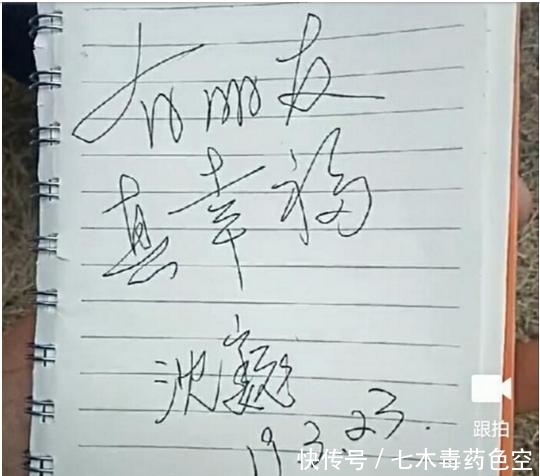 有朋友
真幸福
沈巍
19.3.23.
跟拍
快传号 / 七木毒药色空